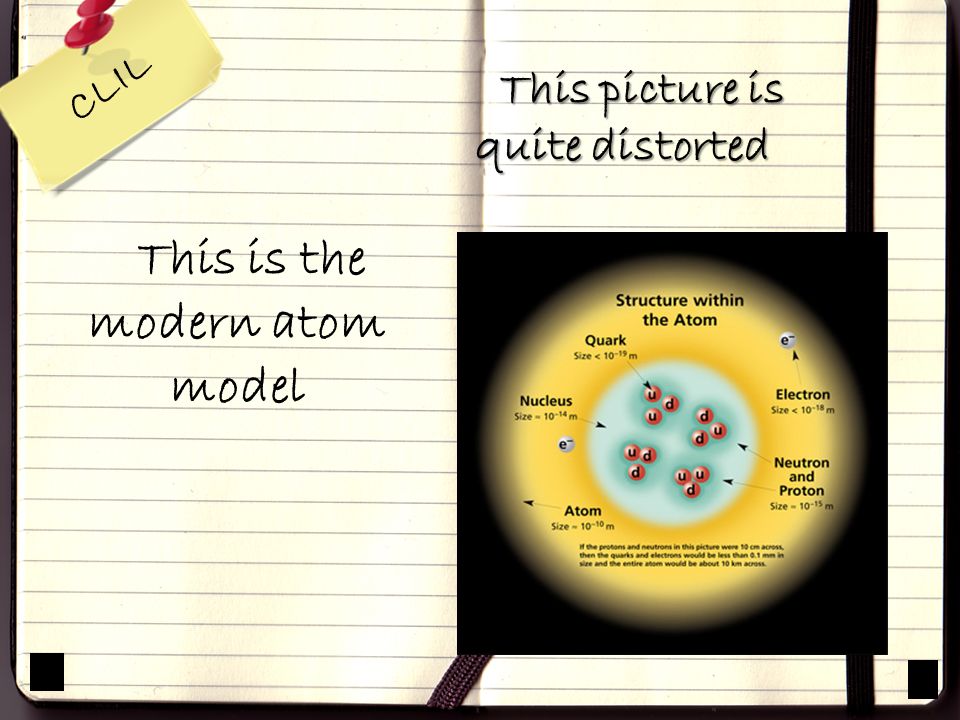 CLIL
This picture is
quite distorted
This is the
modern atom
model
Structure within
the Atom
Quark
Size < 10⁻¹⁹ m
e⁻
Nucleus
Size ≈ 10⁻¹⁴ m
Electron
Size < 10⁻¹⁸ m
u
d
u
d
u
d
e⁻
u
d
d
u
u
d
Neutron
and
Proton
Size ≈ 10⁻¹⁵ m
Atom
Size ≈ 10⁻¹⁰ m
If the protons and neutrons in this picture were 10 cm across,
then the quarks and electrons would be less than 0.1 mm in
size and the entire atom would be about 10 km across.